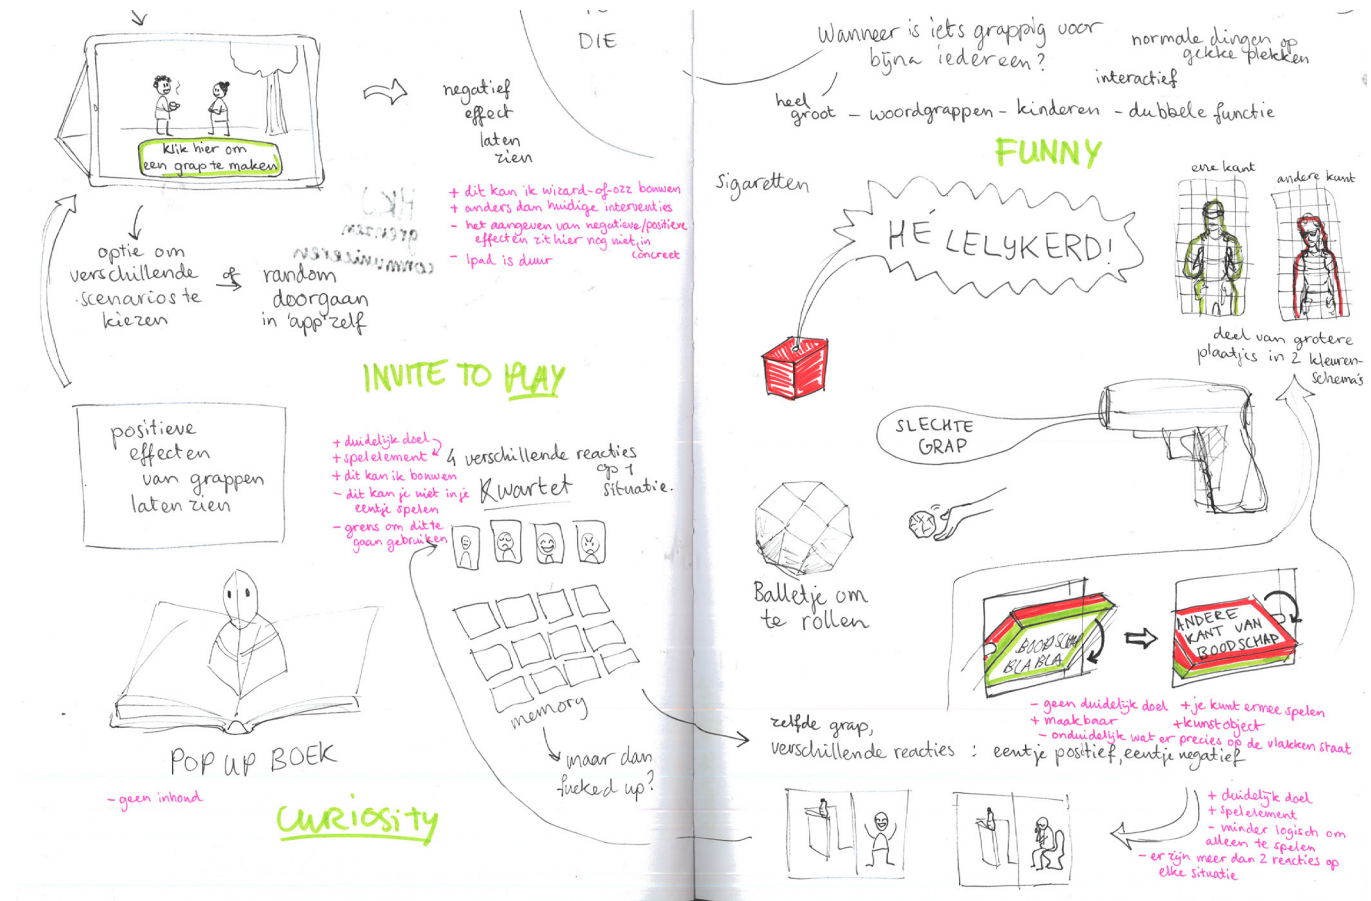 DIE
klik hier om
een grap te maken
negatief
effect
laten
zien
+ dit kan ik wizard-of-ozz bouwen
+ anders dan huidige interventies
- het aangeven van negatieve/positieve
effecten zit hier nog niet in
concreet
- Ipad is duur
HKJ
grenzen
communiceren
optie om
verschillende
scenarios te
kiezen
of
random
doorgaan
in 'app' zelf
INVITE TO PLAY
positieve
effecten
van grappen
laten zien
+ duidelijk doel
+ spelelement
+ dit kan ik bouwen
- dit kan je niet in je
eentje spelen
- grens om dit te
gaan gebruiken
4 verschillende reacties
op 1
situatie.
Kwartet
memory
maar dan
fucked up?
POP UP BOEK
- geen inhoud
CURIOSITY
Wanneer is iets grappig voor
bijna iedereen?
normale dingen op
gekke plekken
interactief
heel
groot - woordgrappen - kinderen - dubbele functie
FUNNY
sigaretten
HÉ LELYKERD!
ene kant
andere kant
deel van grotere
plaatjes in 2 kleuren-
schema's
SLECHTE
GRAP
Balletje om
te rollen
BOODSCHAP
BLA BLA
ANDERE
KANT VAN
BOODSCHAP
- geen duidelijk doel
+ maakbaar
+ je kunt ermee spelen
+ kunstobject
- onduidelijk wat er precies op de vlakken staat
zelfde grap,
verschillende reacties : eentje positief, eentje negatief
+ duidelijk doel
+ spelelement
- minder logisch om
alleen te spelen
- er zijn meer dan 2 reacties op
elke situatie